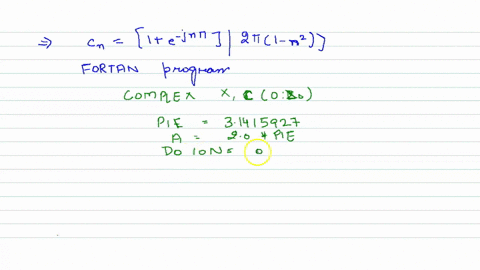 ⇒ Cn = [1+e^-jnπ] | 2π(1-n²)]
FORTAN program
COMPLEX X, C (0:20)
PIE = 3.1415927
A = 2.0 * PIE
DO 10 N = 0